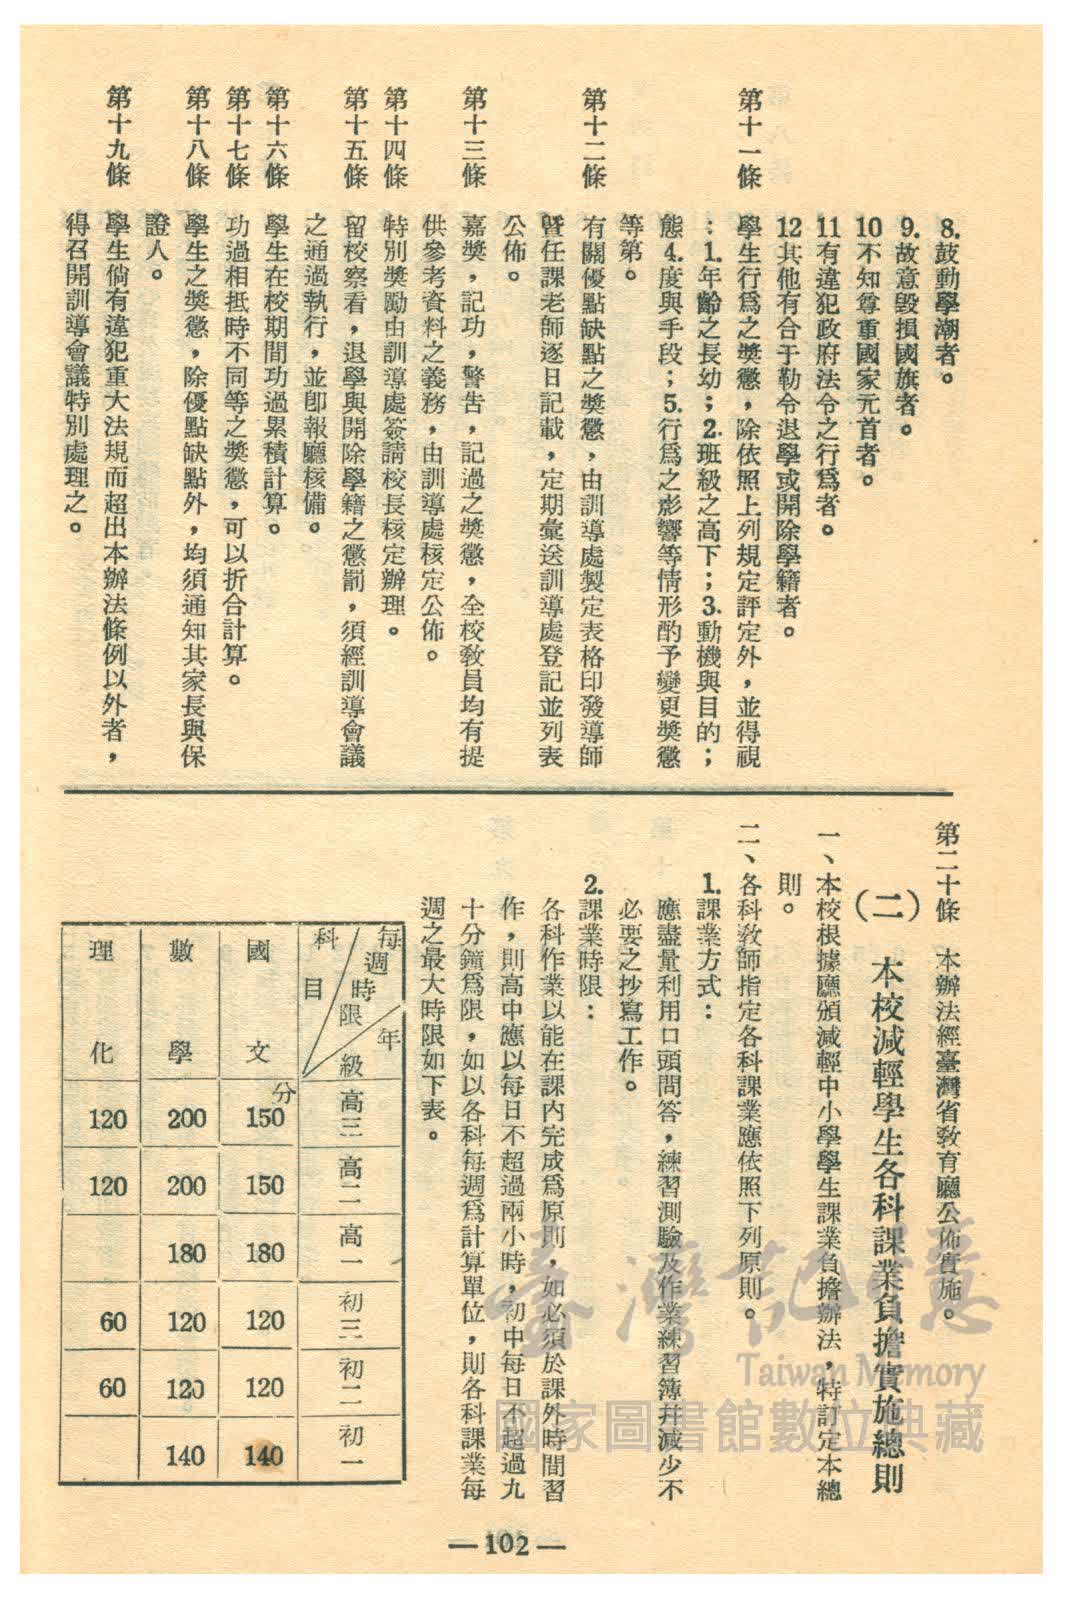 8.鼓動學潮者。
9.故意毀損國旗者。
10不知尊重國家元首者。
11有違犯政府法令之行爲者。
12其他有合于勒令退學或開除學籍者。
第十一條 學生行爲之獎懲，除依照上列規定評定外，並得視
：1.年齡之長幼；2.班級之高下；3.動機與目的；
態4.度與手段；5.行爲之影響等情形酌予變更獎懲
等第。
第十二條 有關優點缺點之獎懲，由訓導處製定表格印發導師
曁任課老師逐日記載，定期彙送訓導處登記並列表
公佈。
第十三條 嘉獎，記功，警告，記過之獎懲，全校教員均有提
供參考資料之義務，由訓導處核定公佈。
第十四條 特別獎勵由訓導處簽請校長核定辦理。
第十五條 留校察看，退學與開除學籍之懲罰，須經訓導會議
之通過執行，並卽報廳核備。
第十六條 學生在校期間功過累積計算。
第十七條 功過相抵時不同等之獎懲，可以折合計算。
第十八條 學生之獎懲，除優點缺點外，均須通知其家長與保
證人。
第十九條 學生倘有違犯重大法規而超出本辦法條例以外者，
得召開訓導會議特別處理之。
第二十條 本辦法經臺灣省教育廳公佈實施。
（二）本校減輕學生各科課業負擔實施總則
一、本校根據廳頒減輕中小學學生課業負擔辦法，特訂定本總
則。
二、各科教師指定各科課業應依照下列原則。
1.課業方式：
應盡量利用口頭問答，練習測驗及作業練習簿幷減少不
必要之抄寫工作。
2.課業時限：
各科作業以能在課內完成爲原則，如必須於課外時間習
作，則高中應以每日不超過兩小時，初中每日不超過九
十分鐘爲限，如以各科每週爲計算單位，則各科課業每
週之最大時限如下表。
每週時限 年級 科目 高三 高二 高一 初三 初二 初一
國文 分 150 150 180 120 120 140
數學 200 200 180 120 120 140
理化 120 120 60 60
—102—
臺灣記憶
Taiwan Memory
國家圖書館數位典藏